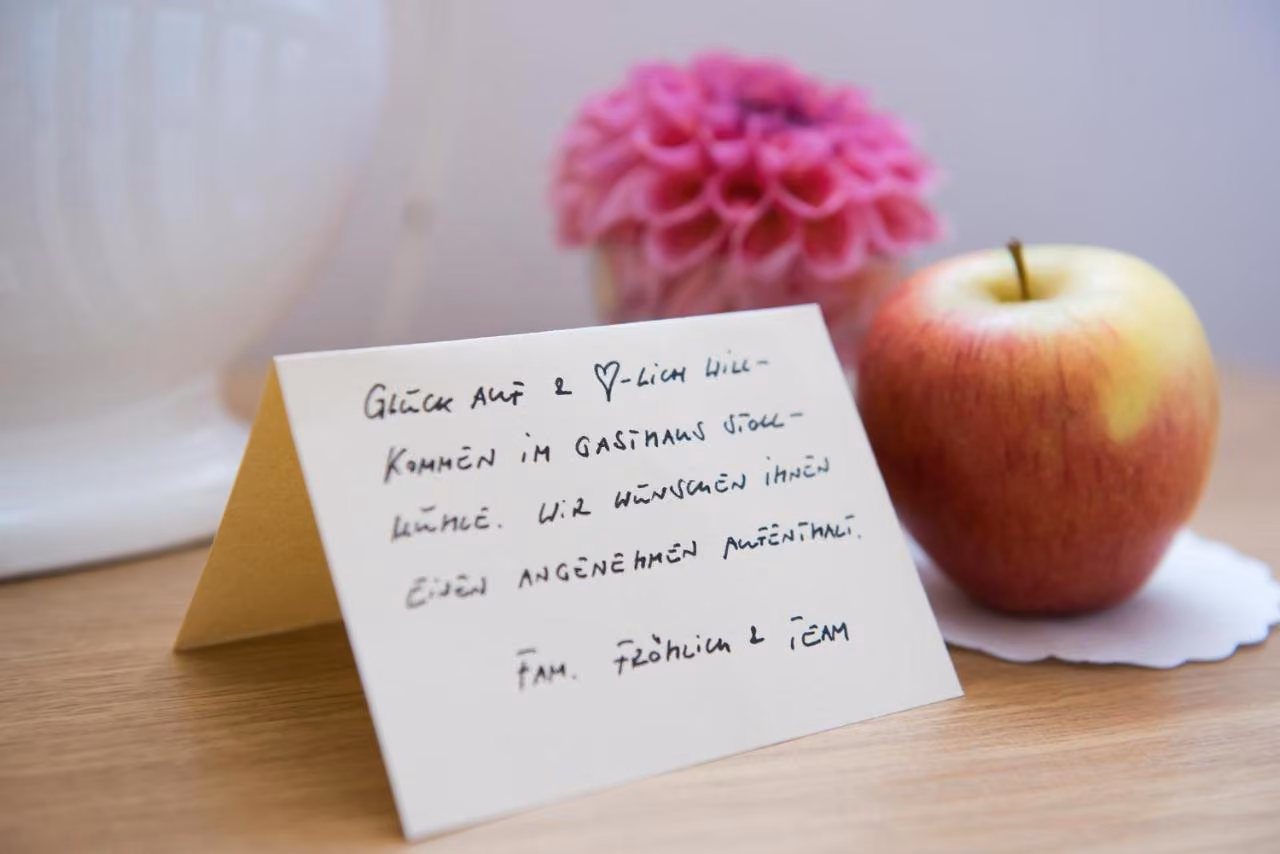 GLÜCK AUF & ♡-LICH WILL-
KOMMEN IM GASTHAUS STOLL-
MÜHLE. WIR WÜNSCHEN IHNEN
EINEN ANGENEHMEN AUFENTHALT.
FAM. FRÖHLICH & TEAM